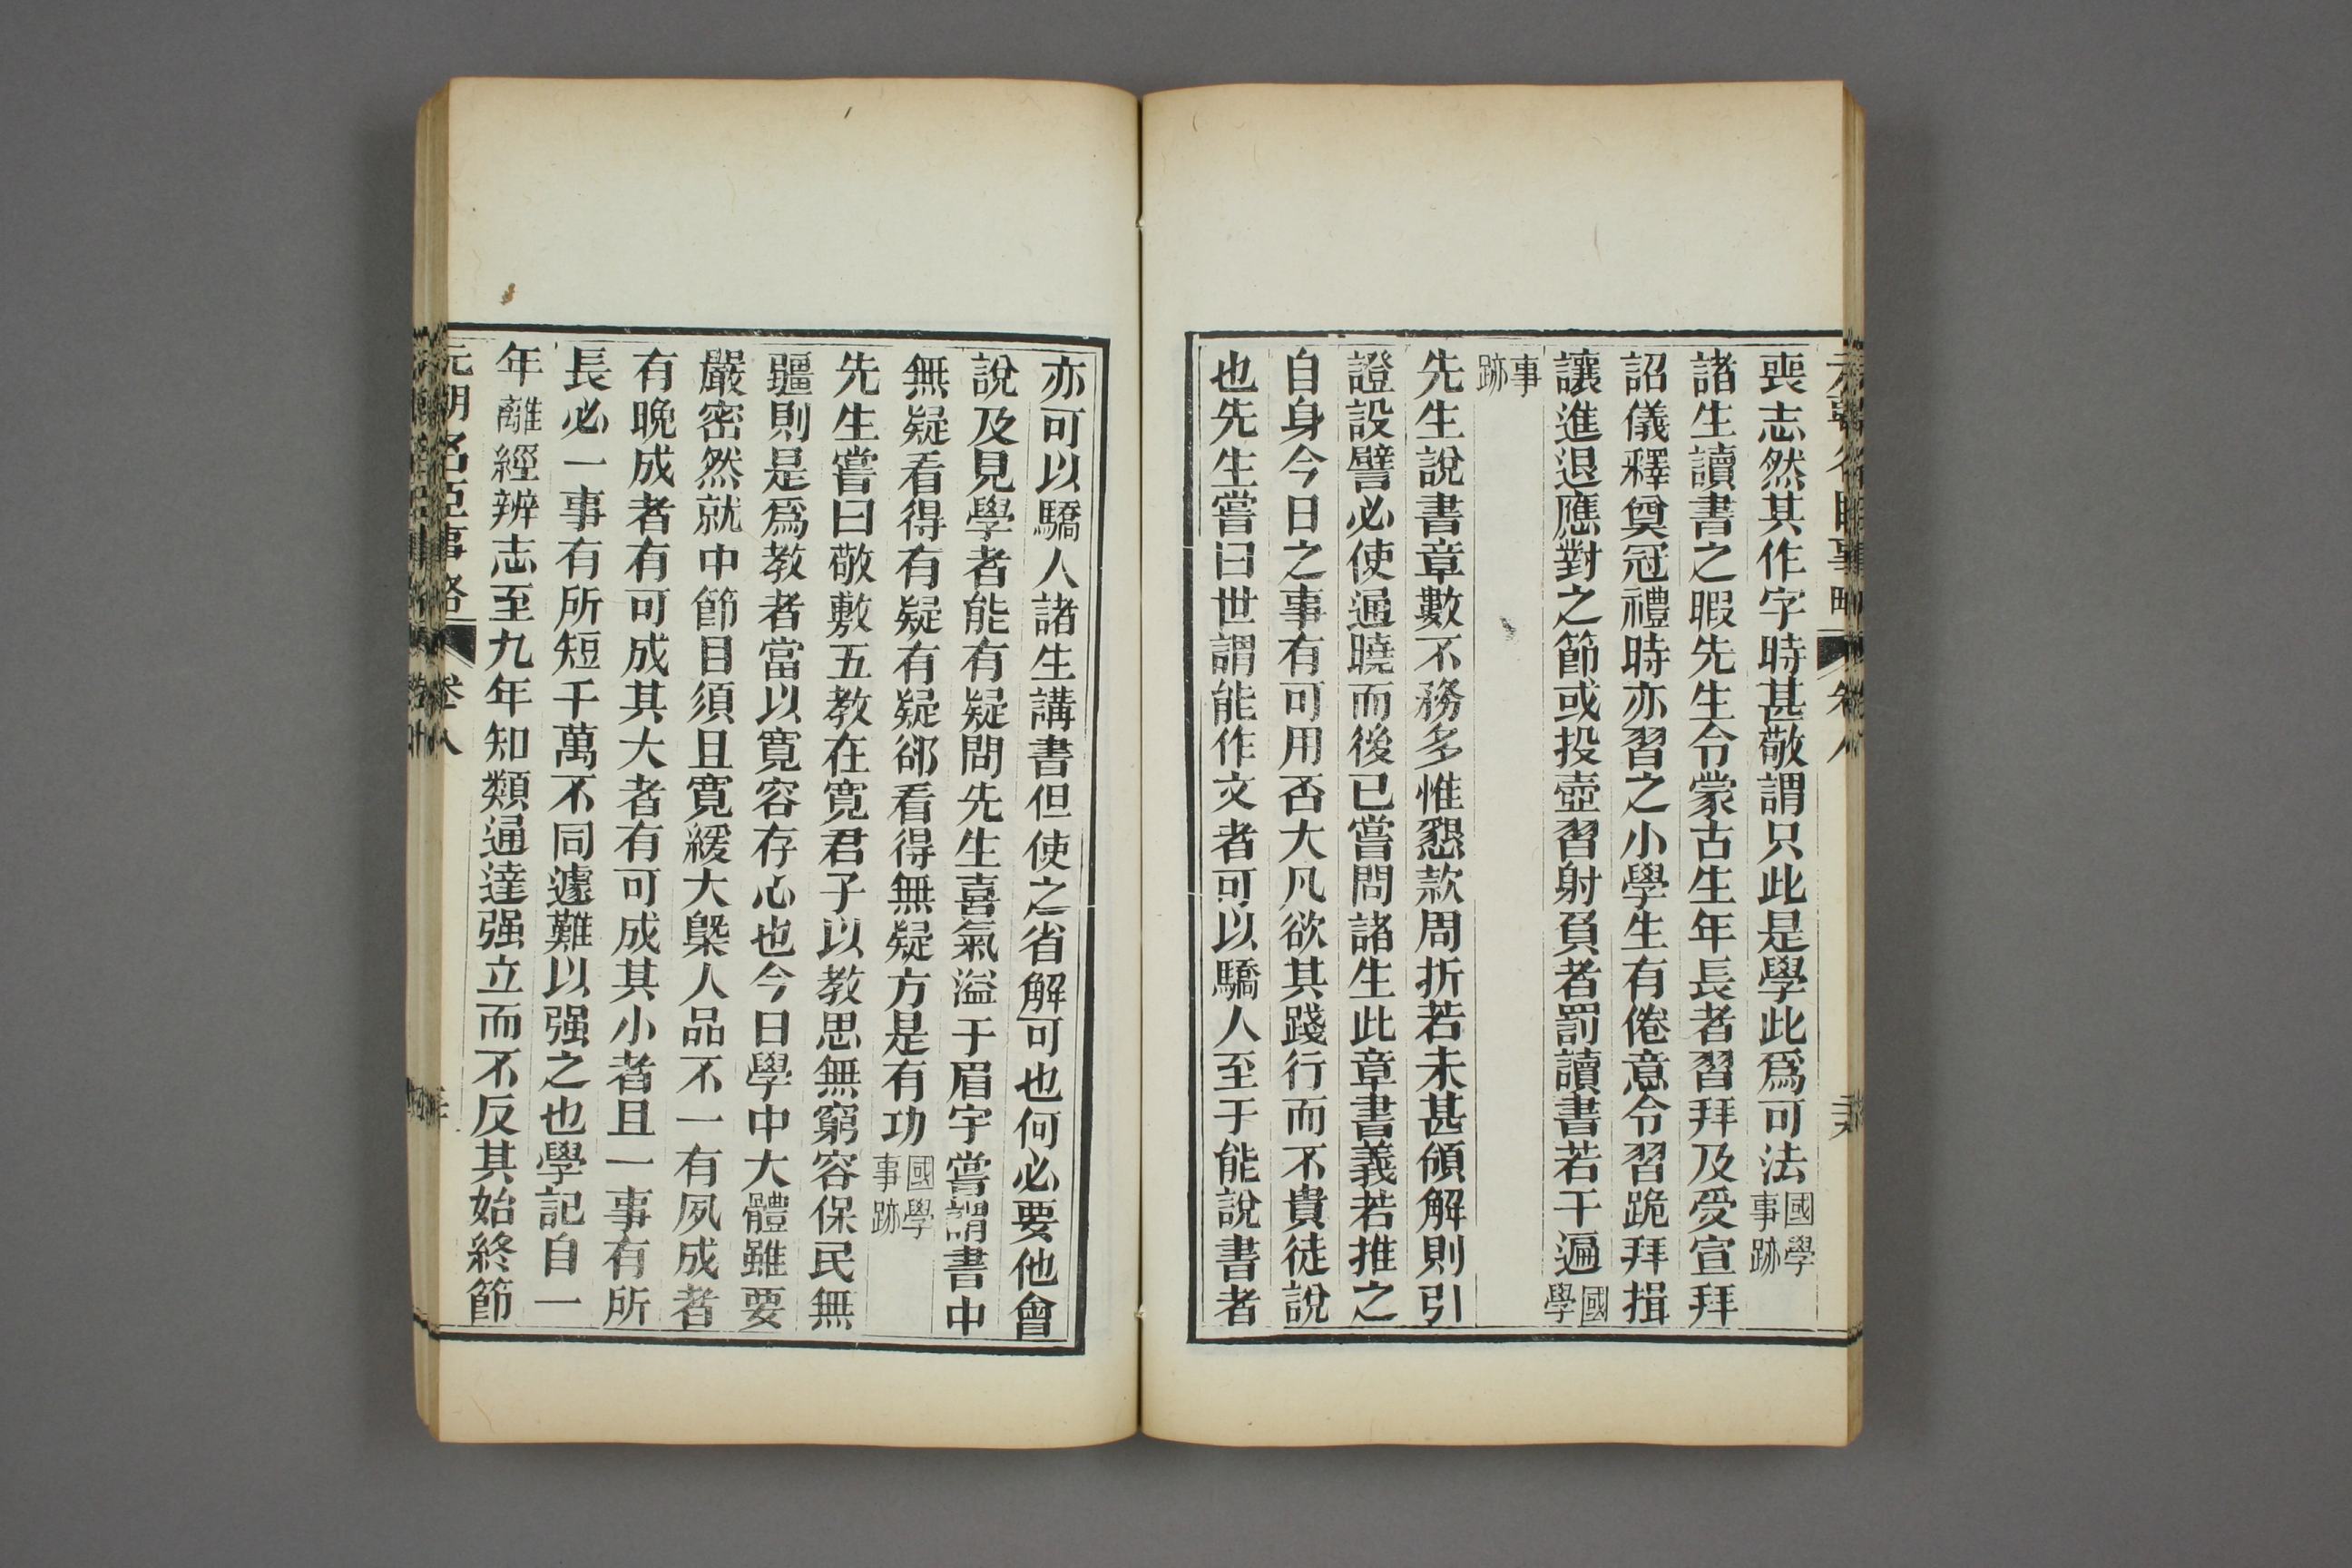 喪志然其作字時甚敬謂只此是學此爲可法國學事跡
諸生讀書之暇先生令蒙古生年長者習拜及受宣拜
詔儀釋奠冠禮時亦習之小學生有倦意令習跪拜揖
讓進退應對之節或投壺習射負者罰讀書若干遍國學
事跡
先生說書章數不務多惟懇款周折若未甚領解則引
證設譬必使通曉而後已嘗問諸生此章書義若推之
自身今日之事有可用否大凡欲其踐行而不貴徒說
也先生嘗曰世謂能作文者可以驕人至于能說書者
亦可以驕人諸生講書但使之省解可也何必要他會
說及見學者能有疑問先生喜氣溢于眉宇嘗謂書中
無疑看得有疑有疑郤看得無疑方是有功國學事跡
先生嘗曰敬敷五教在寬君子以教思無窮容保民無
疆則是爲教者當以寬容存心也今日學中大體雖要
嚴密然就中節目須且寬緩大槩人品不一有夙成者
有晚成者有可成其大者有可成其小者且一事有所
長必一事有所短千萬不同遽難以强之也學記自一
年離經辨志至九年知類通達强立而不反其始終節
元朝名臣事略 卷八